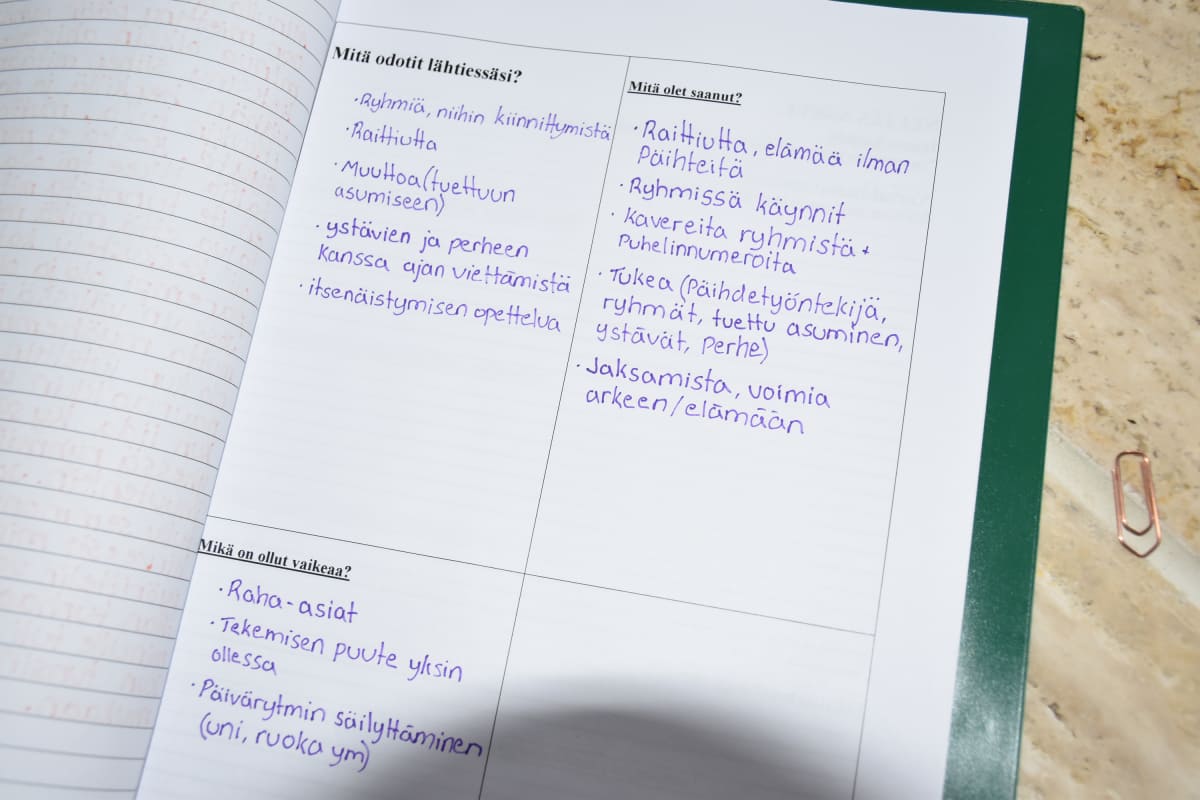 Mitä odotit lähtiessäsi?
· Ryhmiä, niihin kiinnittymistä
· Raittiutta
· Muuttoa (tuettuun
asumiseen)
· ystävien ja perheen
kanssa ajan viettämistä
· itsenäistymisen opettelua
Mitä olet saanut?
· Raittiutta, elämää ilman
Päihteitä
· Ryhmissä käynnit
· Kavereita ryhmistä +
Puhelinnumeroita
· Tukea (Päihdetyöntekijä,
ryhmät, tuettu asuminen,
ystävät, perhe)
· Jaksamista, voimia
arkeen/elämään
Mikä on ollut vaikeaa?
· Raha-asiat
· Tekemisen puute yksin
ollessa
· Päivärytmin säilyttäminen
(uni, ruoka ym)